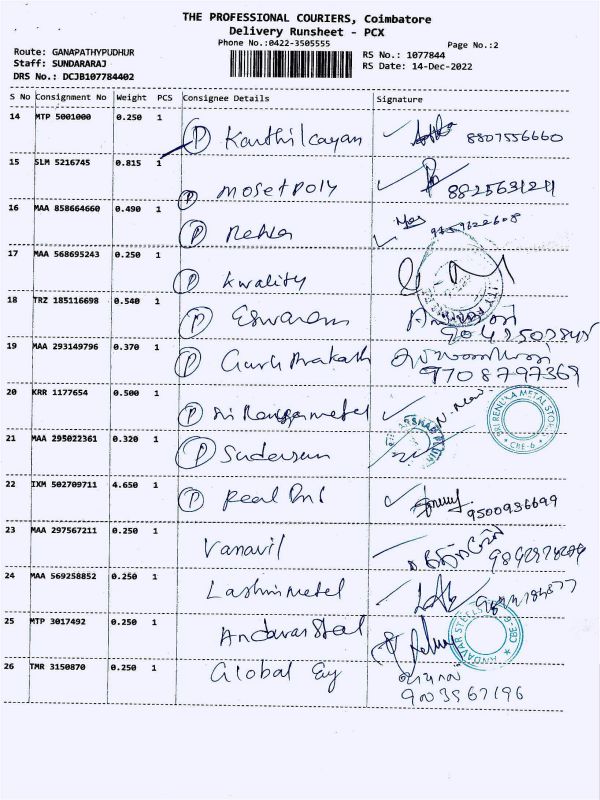 THE PROFESSIONAL COURIERS, Coimbatore
Delivery Runsheet - PCX
Phone No.:0422-3505555
Page No.:2
Route: GANAPATHYPUDHUR
RS No.: 1077844
Staff: SUNDARARAJ
RS Date: 14-Dec-2022
DRS No.: DCJB107784402
S No Consignment No Weight PCS Consignee Details Signature
14 MTP 5001000 0.250 1
P Karthikayan 8807556660
15 SLM 5216745 0.815 1
P mosetpoly 8825631211
16 MAA 858664660 0.490 1
P Nehla
17 MAA 568695243 0.250 1
P Kwality
18 TRZ 185116698 0.540 1
P Eswaran
19 MAA 293149796 0.370 1
P Guru Prakash
9708797369
20 KRR 1177654 0.500 1
P Sri Renga metel
SRI RENUKA METAL STORES CBE-6
21 MAA 295022361 0.320 1
P Sudersun
22 IXM 502709711 4.650 1
P Real 9500936699
23 MAA 297567211 0.250 1
Vanavil
24 MAA 569258852 0.250 1
Lashmi metel
25 MTP 3017492 0.250 1
Andavar Steel
ANDAVAR STEELS CBE-6
26 TMR 3150870 0.250 1
Global Ey
9003967196